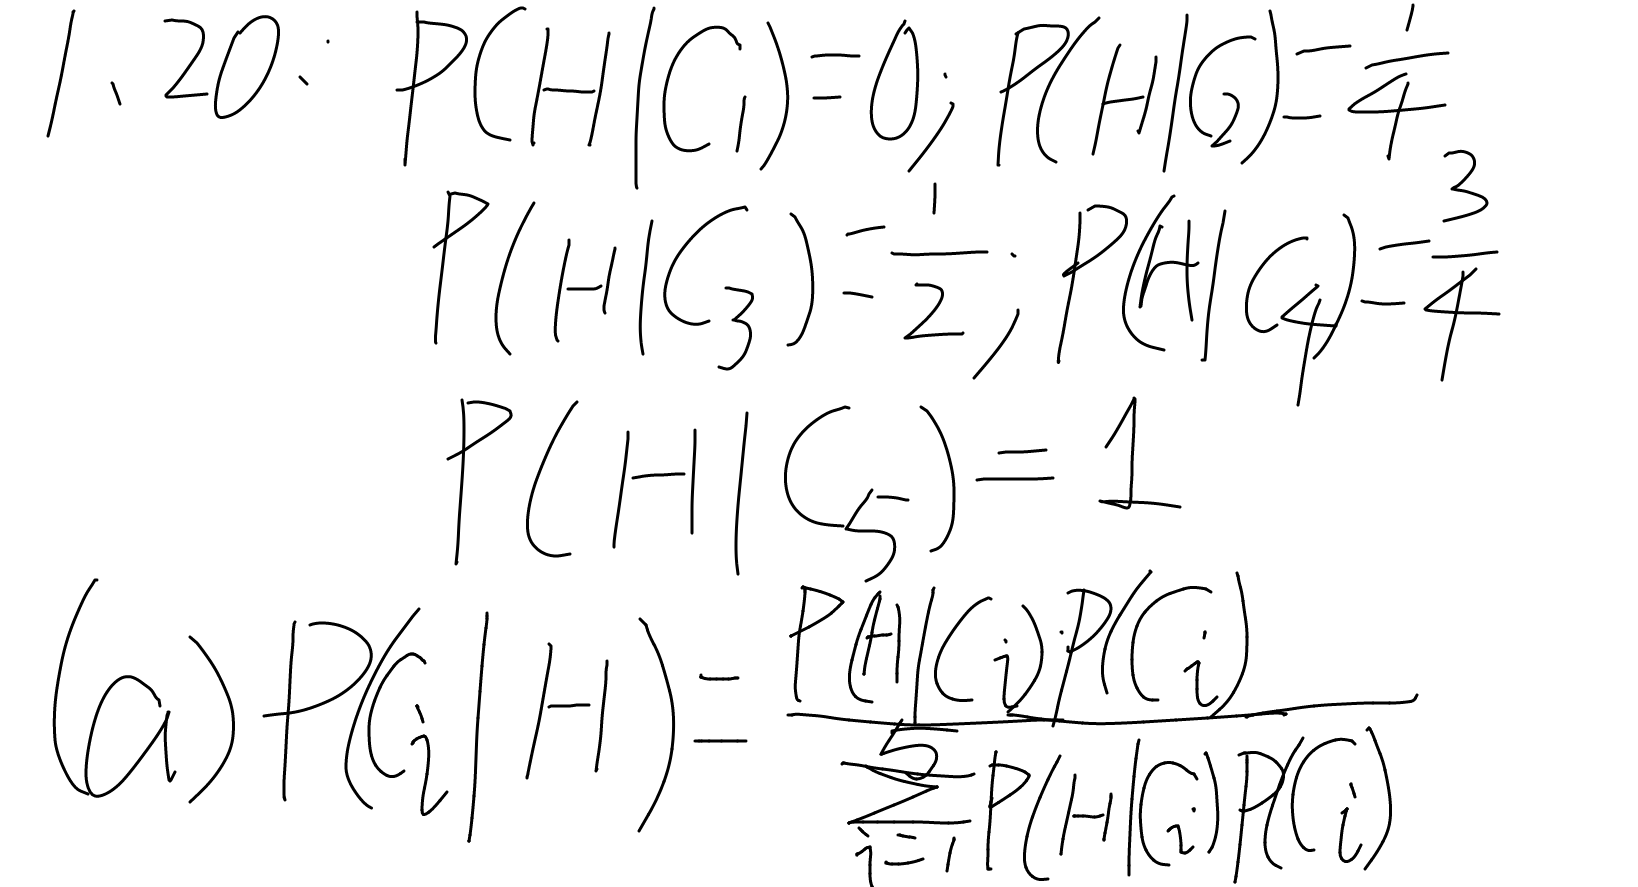 1.20: P(H|C₁)=0; P(H|C₂)=1/4
P(H|C₃)=1/2; P(H|C₄)=3/4
P(H|C₅)=1
(a) P(Cᵢ|H)=P(H|Cᵢ)·P(Cᵢ)/∑ᵢ₌₁⁵P(H|Cᵢ)P(Cᵢ)